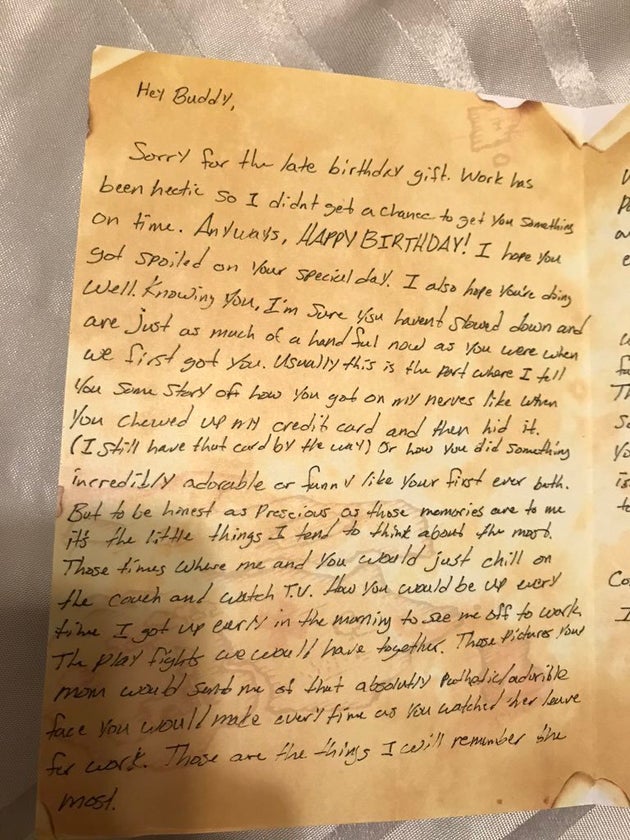 Hey Buddy,
Sorry for the late birthday gift. Work has
been hectic so I didnt get a chance to get you something
on time. Anyways, HAPPY BIRTHDAY! I hope you
got spoiled on your special day. I also hope you're doing
well. Knowing you, I'm sure you havent slowed down and
are just as much of a handful now as you were when
we first got you. Usually this is the part where I tell
you some story of how you got on my nerves like when
you chewed up my credit card and then hid it.
(I still have that card by the way) Or how you did something
incredibly adorable or funny like your first ever bath.
But to be honest as Prescious as those memories are to me
it's the little things I tend to think about the most.
Those times where me and you would just chill on
the couch and watch T.V. How you would be up every
time I got up early in the morning to see me off to work.
The play fights we would have together. Those Pictures your
mom would send me of that absolutly Pathatic/adorible
face you would make every time as you watched her leave
for work. Those are the things I will remember the
most.